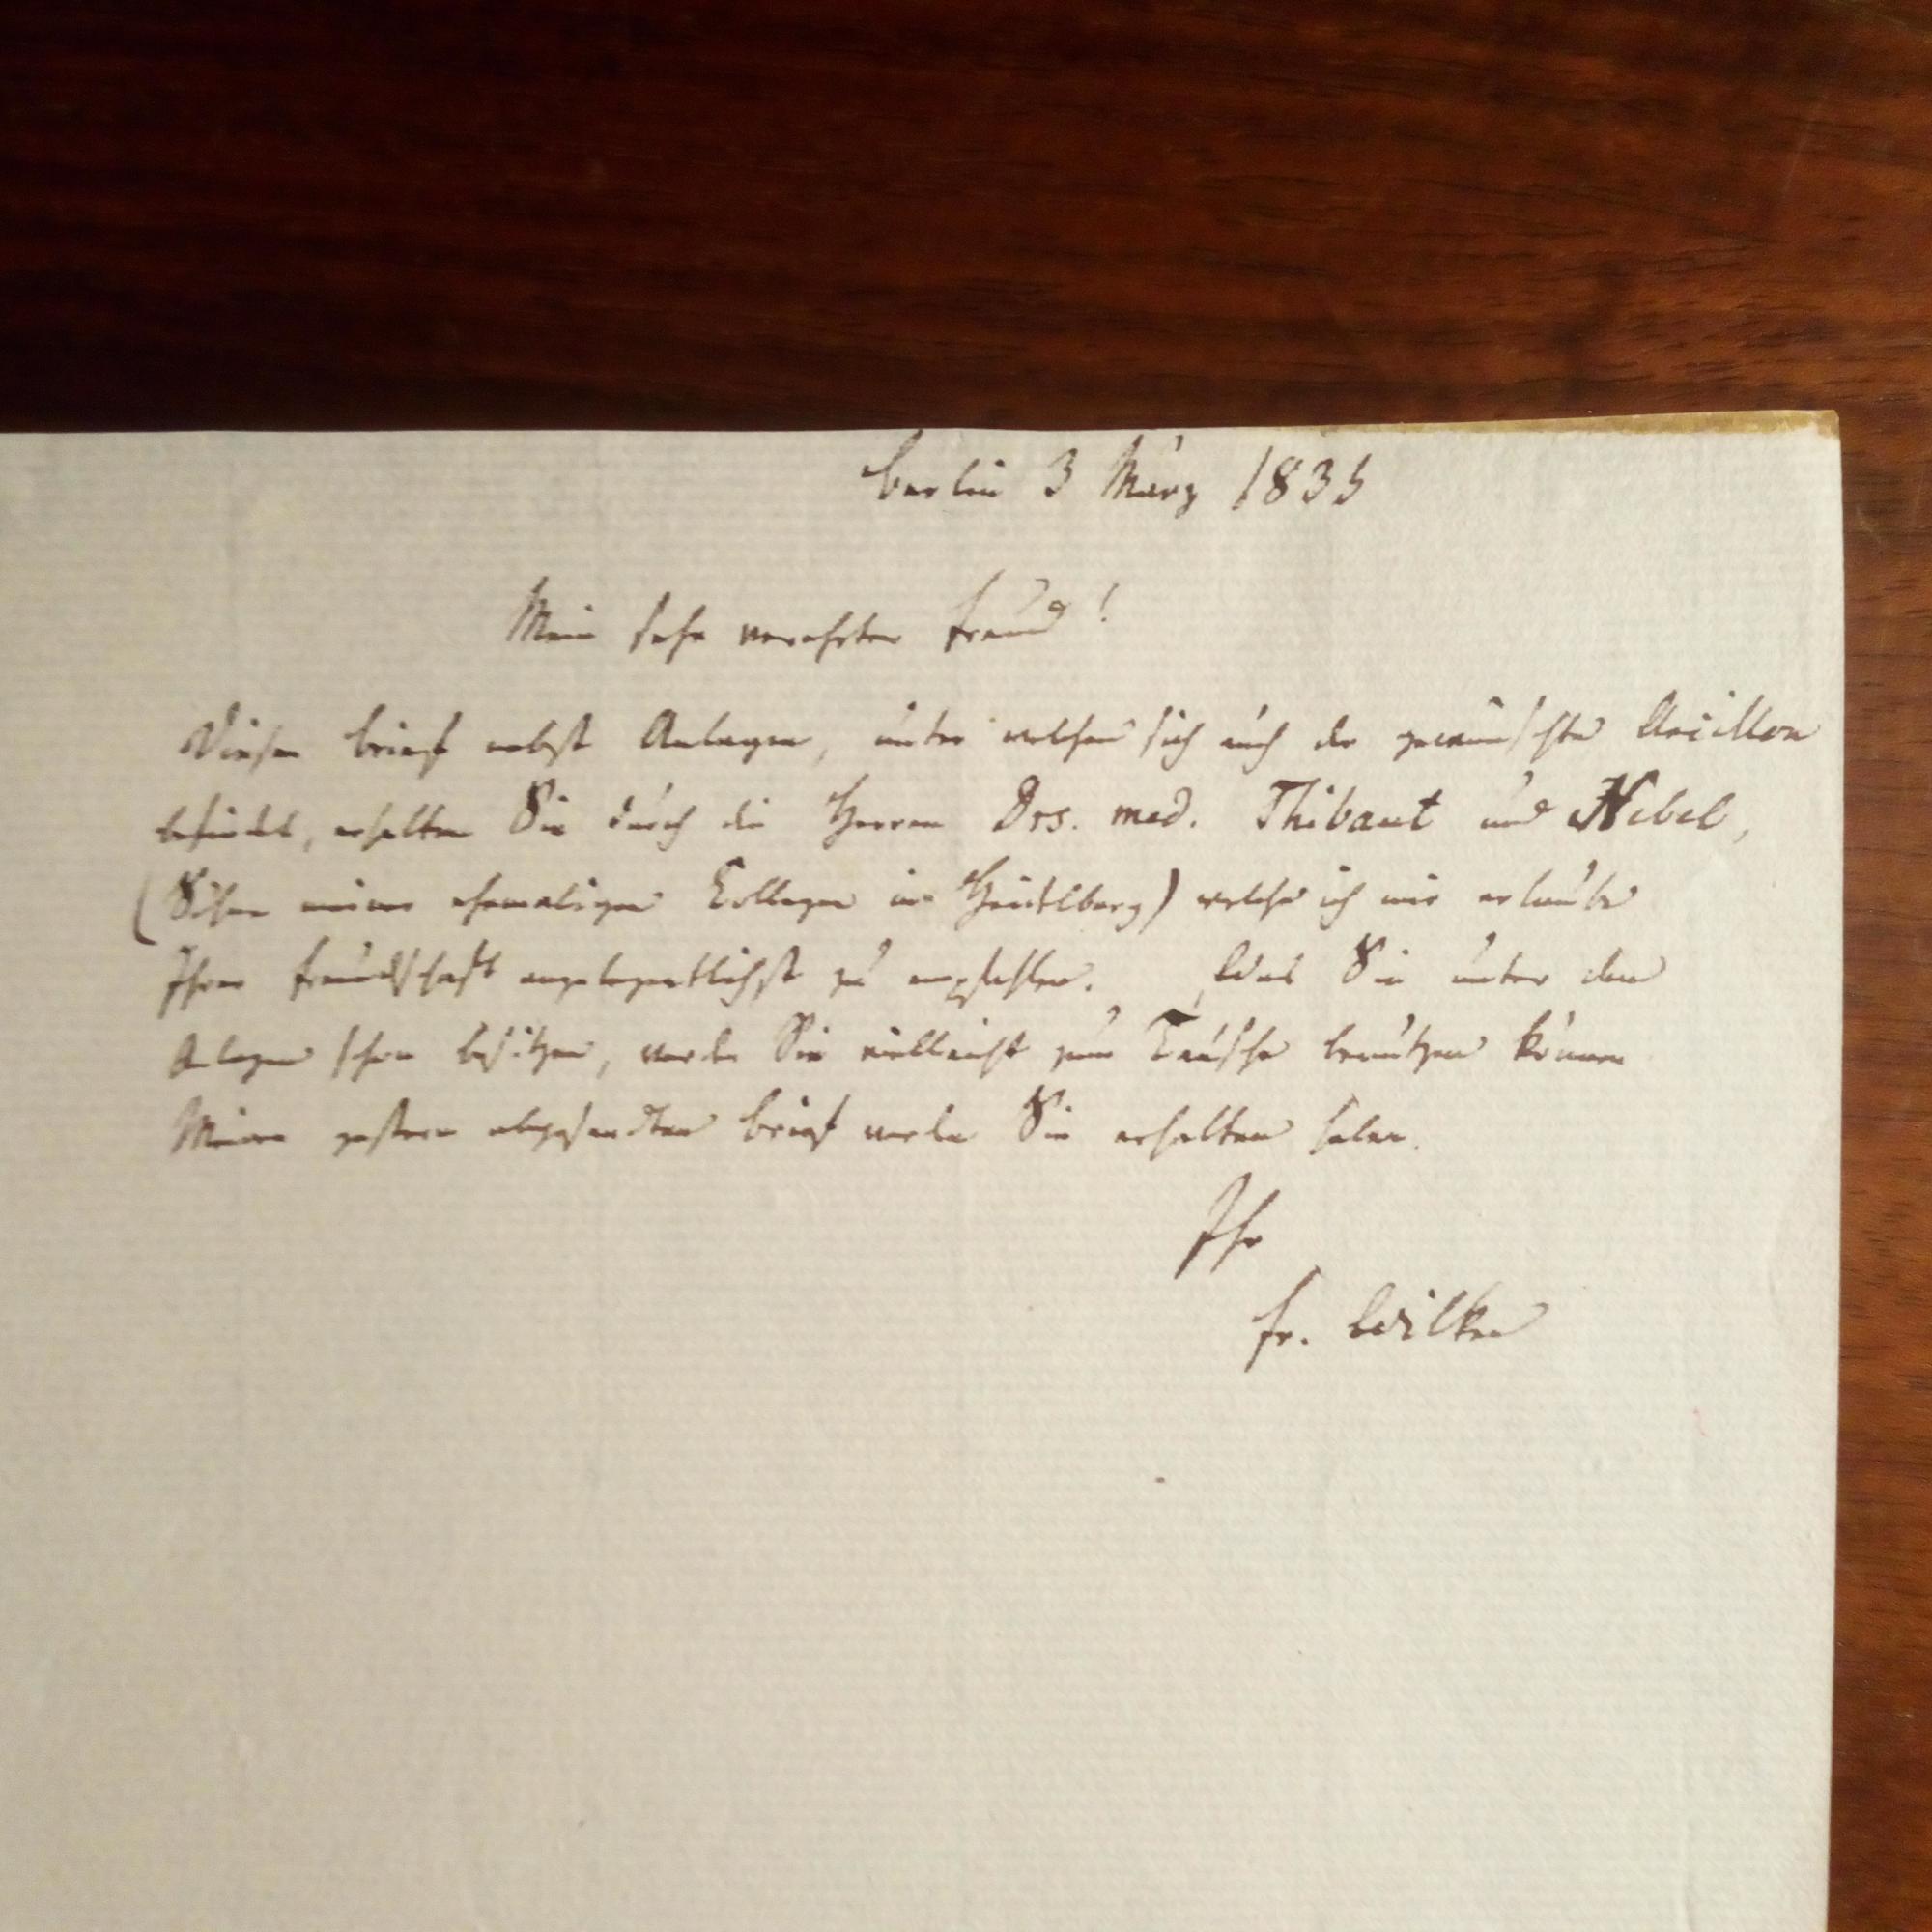 Berlin 3 März 1835
Mein sehr verehrter Freund!
Diesen Brief nebst Anlagen, unter welchen sich auch der gewünschte Ancillon
befindet, erhalten Sie durch die Herren Drs. med. Thibaut und Nebel,
(Söhne meiner ehemaligen Collegen in Heidelberg) welche ich mir erlaube
Ihrer Freundschaft angelegentlichst zu empfehlen. Was Sie unter den
Anlagen schon besitzen, werden Sie vielleicht zum Tausche benutzen können
Meinen gestern abgesandten Brief werden Sie erhalten haben.
Ihr
Fr. Wilken